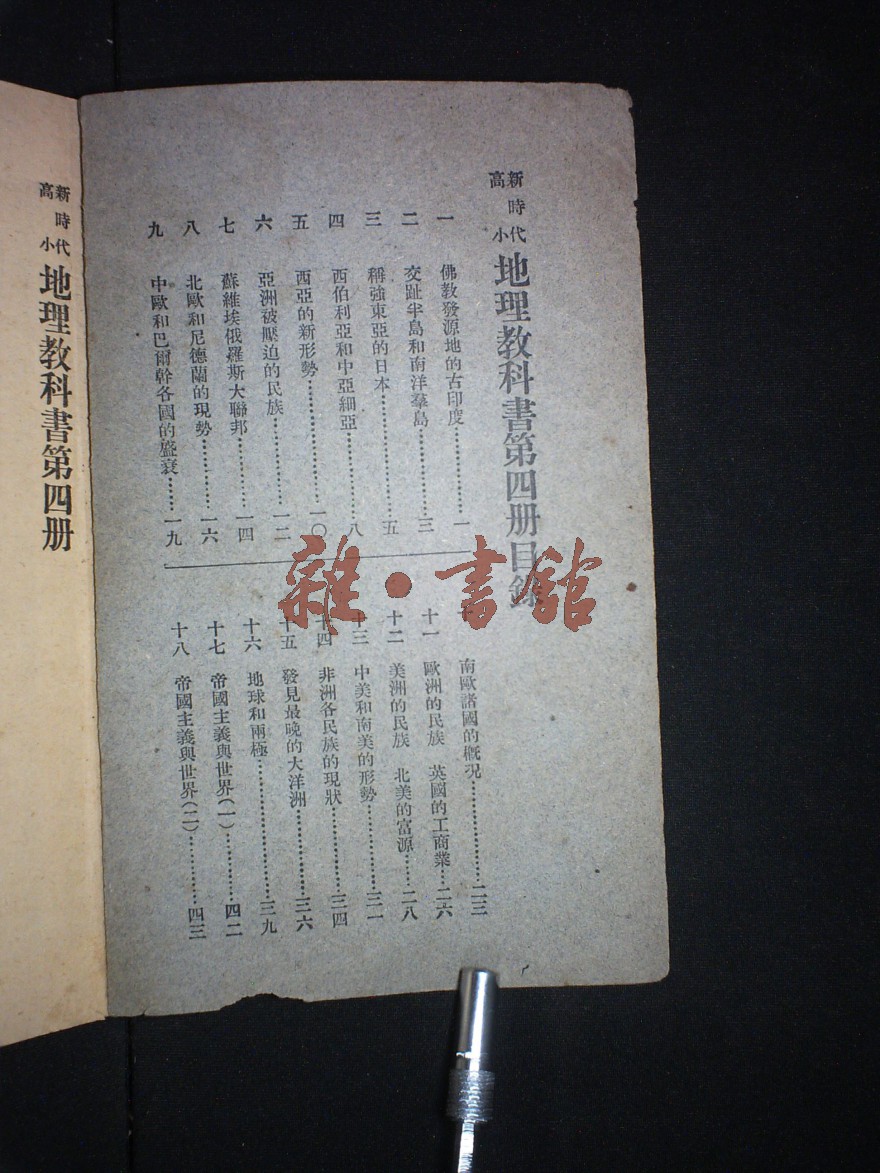 高新
時
小代
地理教科書第四册目錄
一 佛教發源地的古印度……一
二 交趾半島和南洋羣島……三
三 稱強東亞的日本……五
四 西伯利亞和中亞細亞……八
五 西亞的新形勢……一〇
六 亞洲被壓迫的民族……一二
七 蘇維埃俄羅斯大聯邦……一四
八 北歐和尼德蘭的現勢……一六
九 中歐和巴爾幹各國的盛衰……一九
南歐諸國的概況……二三
十一 歐洲的民族 英國的工商業……二六
十二 美洲的民族 北美的富源……二八
十三 中美和南美的形勢……三一
十四 非洲各民族的現狀……三四
十五 發見最晚的大洋洲……三六
十六 地球和兩極……三九
十七 帝國主義與世界(一)……四二
十八 帝國主義與世界(二)……四三
雜·書館
高新
時
小代
地理教科書第四册